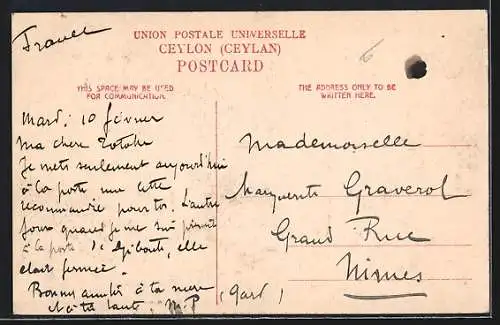 France
UNION POSTALE UNIVERSELLE
CEYLON (CEYLAN)
POSTCARD
THIS SPACE MAY BE USED
FOR COMMUNICATION.
THE ADDRESS ONLY TO BE
WRITTEN HERE.
Mardi 10 février
Ma chère
Je mets seulement aujourd'hui
à la poste une lettre
recommandée pour toi. L'autre
jour quand je me suis
à la poste de Djibouti, elle
était fermée.
à ta mère
et à ta tante, M. P
Mademoiselle
Marguerite Graverol
Grand Rue
Nimes
(Gard)